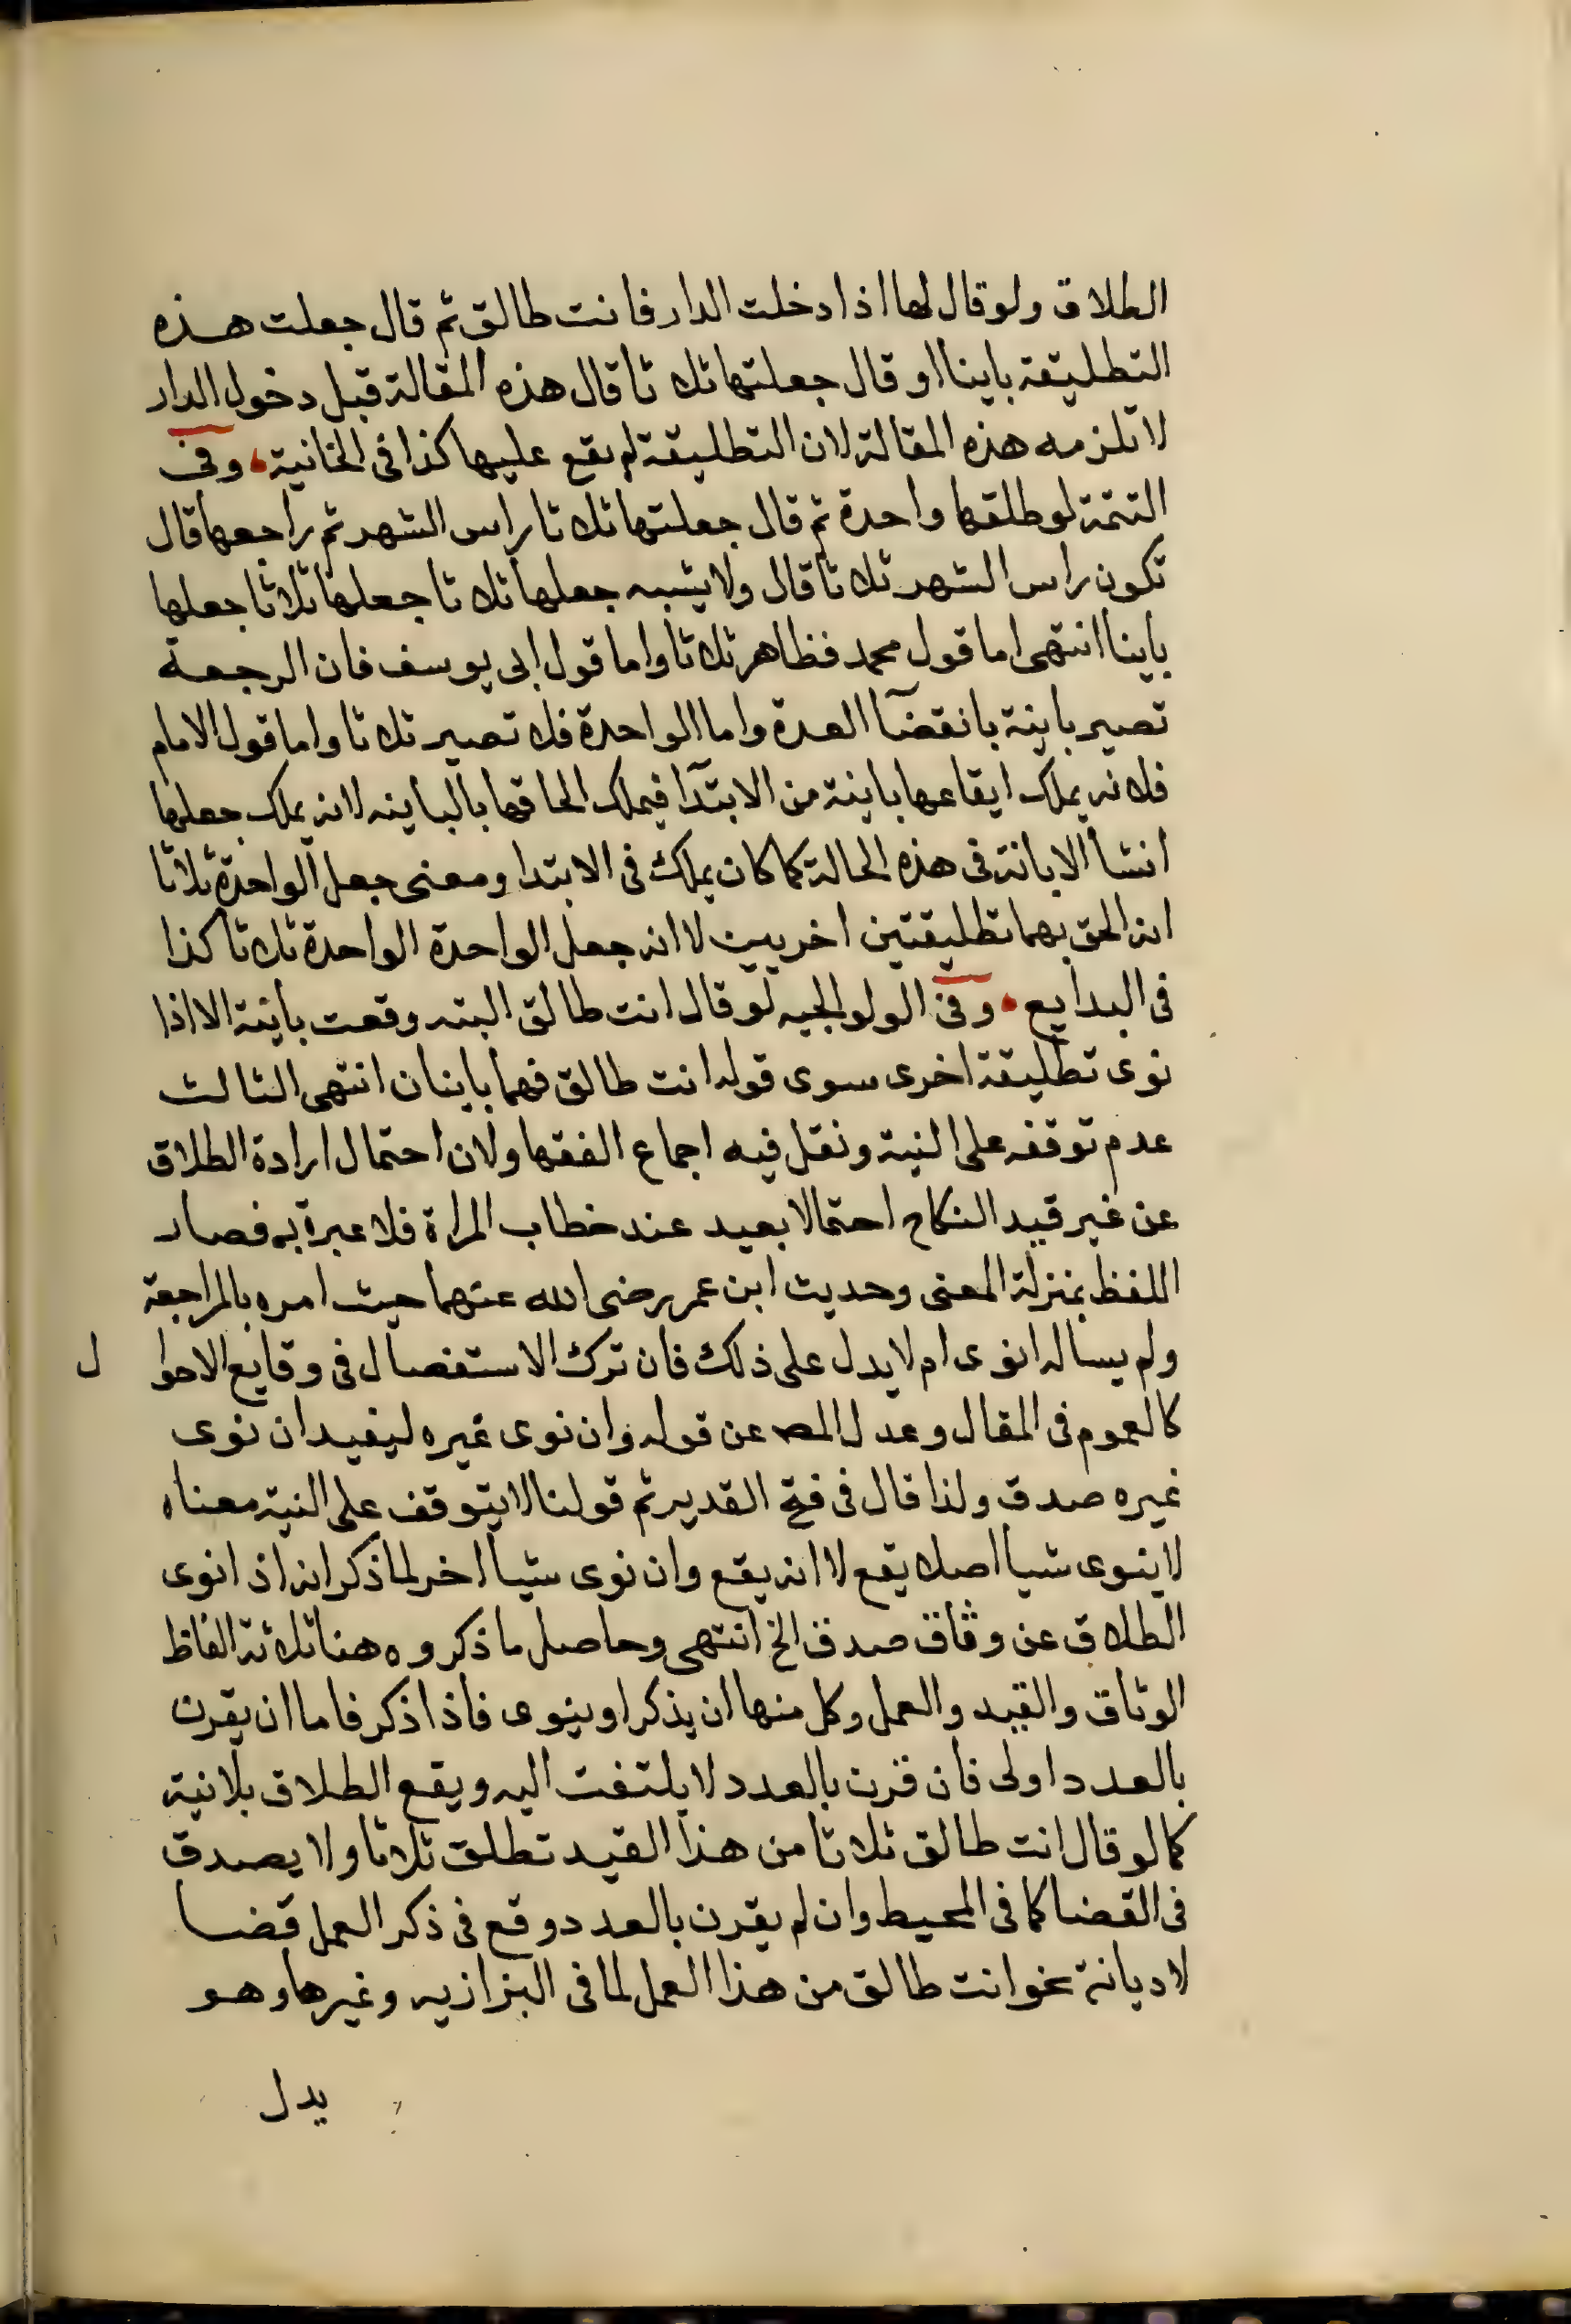 الطلاق ولو قال لها اذا دخلت الدار فانت طالق ثم قال جعلت هذه
التطليقة باينا او قال جعلتها ثلاثا قال هذه المقالة قبل دخول الدار
لا تلزمه هذه المقالة لان التطليقة لم يقع عليها كذا فى الخانية، وفى
التتمة لو طلقها واحدة ثم قال جعلتها ثلاثا راس الشهر ثم راجعها قال
تكون راس الشهر ثلاثا قال ولا يشبه جعلها ثلاثا جعلها ثلاثا جعلها
باينا انتهى اما قول محمد فظاهر ثلاثا واما قول ابى يوسف فان الرجعة
تصير باينة بانقضآ العدة واما الواحدة فلا تصير ثلاثا واما قول الامام
فلانه يملك ايقاعها باينة من الابتدآ فيملك الحاقها بالباينه لانه يملك جعلها
انشا الابانة فى هذه الحالة كما كان يملك فى الابتدا ومعنى جعل الواحدة ثلاثا
انه الحق بهما تطليقتين اخريين لا انه جعل الواحدة الواحدة ثلاثا كذا
فى البدايع، وفى الولوالجيه لو قال انت طالق البته وقعت باينة الا اذا
نوى تطليقة اخرى سوى قوله انت طالق فهما باينان انتهى الثالث
عدم توقفه على النية ونقل فيه اجماع الفقها ولان احتمال ارادة الطلاق
عن غير قيد النكاح احتمالا بعيد عند خطاب المراة فلا عبرة به فصار
اللفظ بمنزلة المعنى وحديث ابن عمر رضى الله عنهما حيث امره بالمراجعة
ولم يساله انوى ام لا يدل على ذلك فان ترك الاستفصال فى وقايع الاحوا ل
كالعموم فى المقال وعدل المصـ عن قوله وان نوى غيره ليفيد ان نوى
غيره صدق ولذا قال فى فتح القدير ثم قولنا لا يتوقف على النية معناه
لا ينوى شيا اصلا يقع لا انه يقع وان نوى شيا اخر لما ذكر انه اذا نوى
الطلاق عن وثاق صدق الخ انتهى وحاصل ما ذكروه هنا ثلاثة الفاظ
الوثاق والقيد والعمل وكل منها ان يذكر او ينوى فاذا ذكر فاما ان يقرن
بالعدد اولى فان قرن بالعدد لا يلتفت اليه ويقع الطلاق بلا نية
كما لو قال انت طالق ثلاثا من هذا القيد تطلق ثلاثا ولا يصدق
فى القضا كما فى المحيط وان لم يقرن بالعدد وقع فى ذكر العمل قضا
لا ديانة نحو انت طالق من هذا العمل لما فى البزازيه وغيرها وهو
يدل